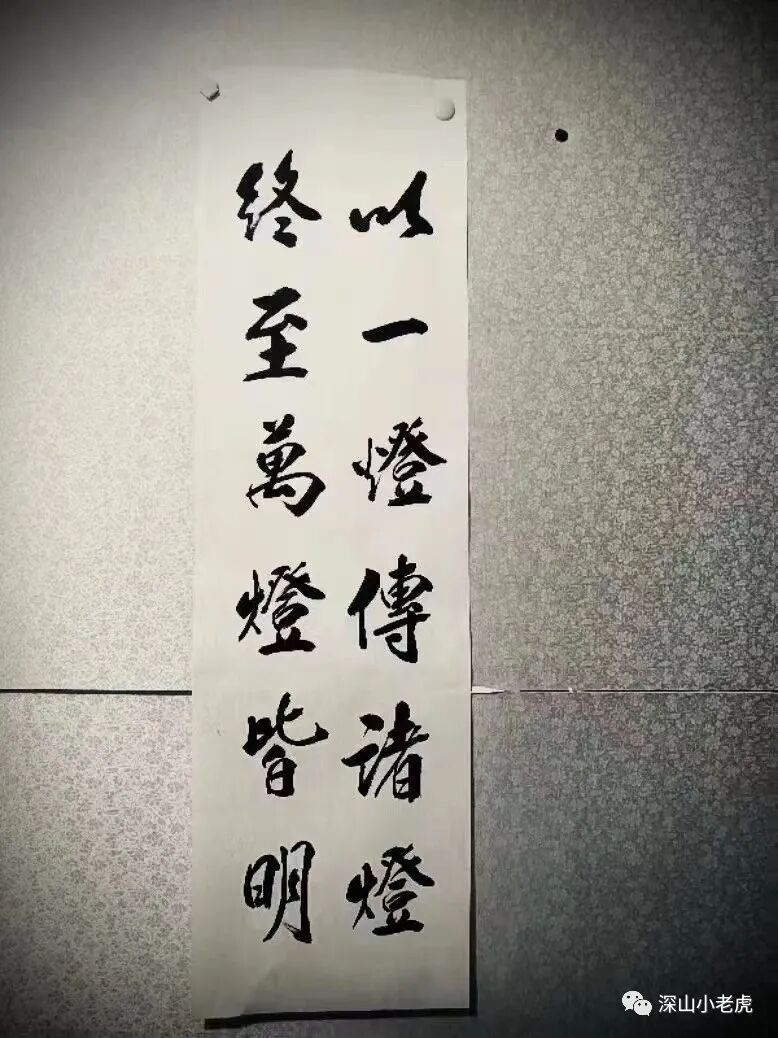 以一燈傳諸燈
終至萬燈皆明
深山小老虎